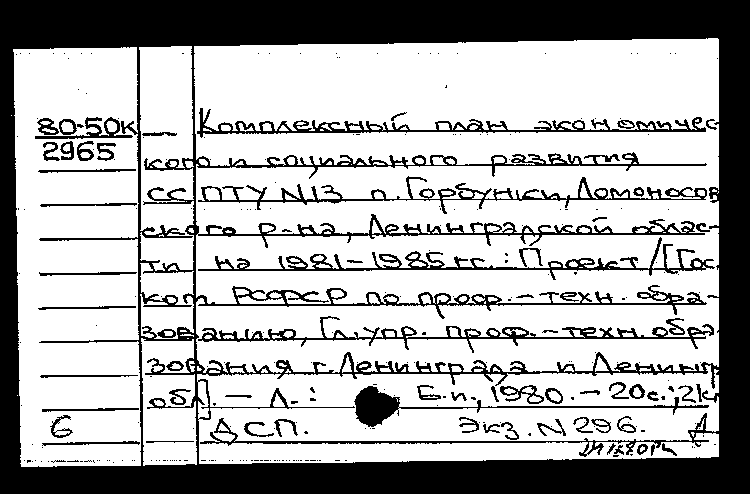 80-50к — Комплексный план экономичес-
2965 кого и социального развития
ССПТУ N13 п. Горбунки, Ломоносов
ского р-на, Ленинградской облас-
ти на 1981-1985 гг.: Проект/[Гос.
ком. РСФСР по проф.-техн. обра-
зованию, Гл. упр. проф.-техн. обра
зования г. Ленинграда и Ленингр
обл]. — Л.: Б.и., 1980. — 20с.;
6 ДСП. Экз. N 296. Д